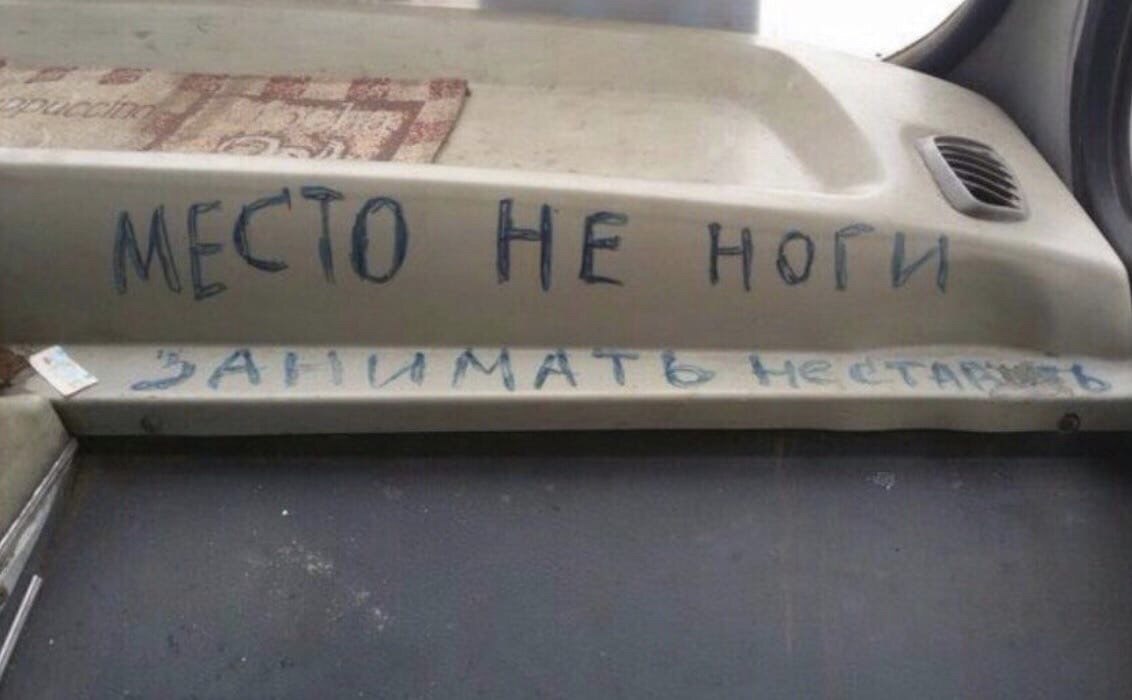 ppuccino
МЕСТО НЕ НОГИ
ЗАНИМАТЬ НЕ СТАВИТЬ